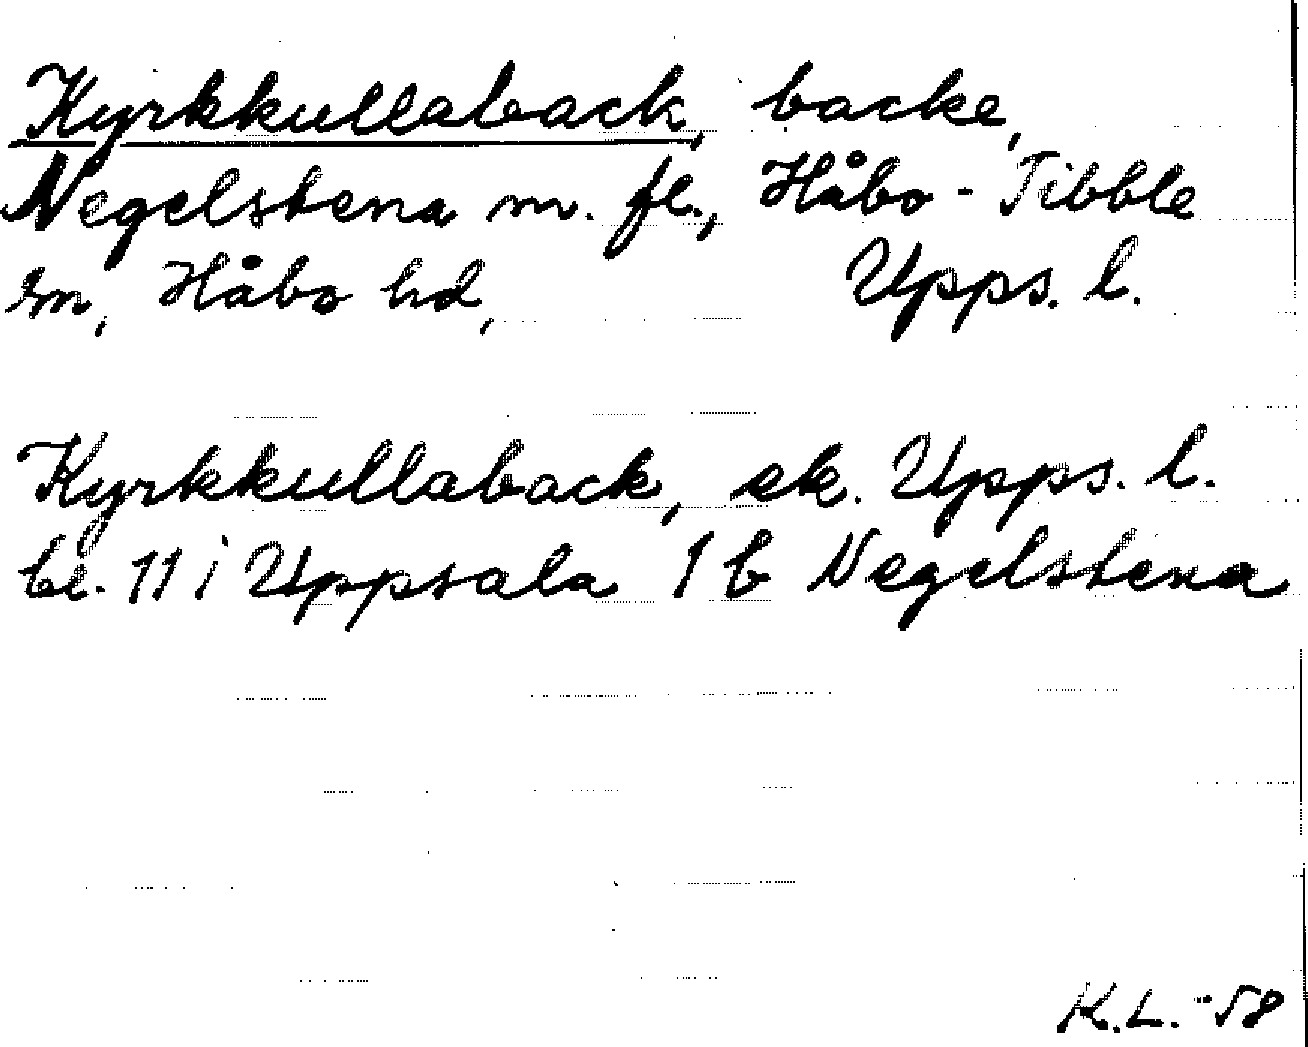 Kyrkkullaback, backe,
Negelstena m. fl., Håbo-Tibble
sn, Håbo hd, Upps. l.
Kyrkkullaback, ek. Upps. l.
bl. 11 i Uppsala 1 b Negelstena
K.L. -58